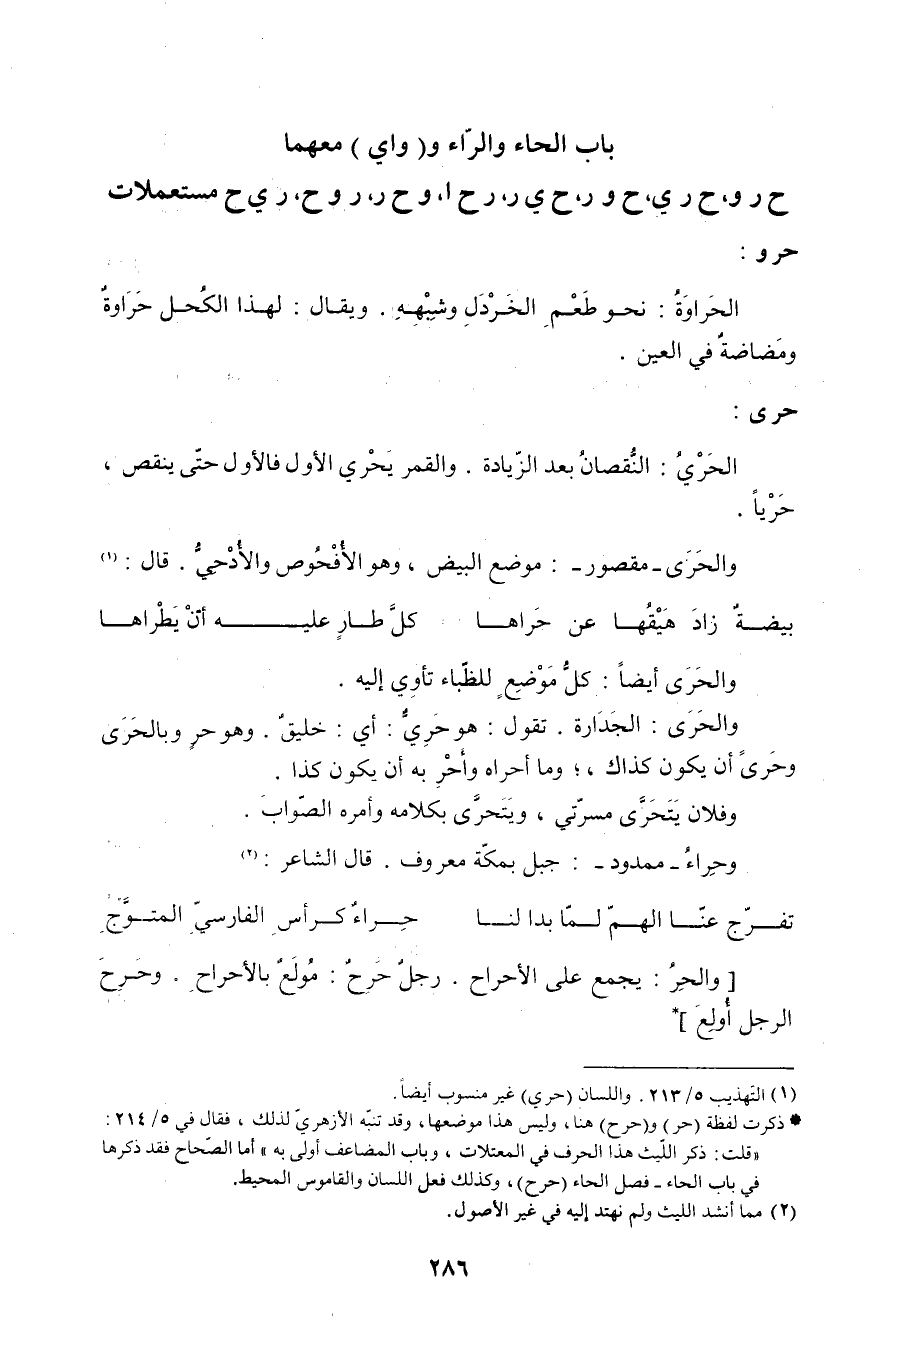 باب الحاء والرّاء و( واي ) معهما
ح ر و، ح ر ي، ح و ر، ح ي ر، ر ح ا، و ح ر، ر و ح، ر ي ح مستعملات
حرو :
الحَراوَةُ : نحو طَعْمِ الخَرْدَلِ وشِبْهِهِ . ويقال : لهذا الكُحل حَرَاوةٌ
ومَضاضةٌ في العين .
حرى :
الحَرْيُ : النُّقصانُ بعد الزّيادة . والقمر يَحْري الأول فالأول حتّى ينقص ،
حَرْياً .
والحَرَى ـ مقصور ـ : موضع البيض ، وهو الأُفْحُوص والأُدْحِيُّ . قال : (١)
بيضةٌ زادَ هَيْقُها عن حَراها كلَّ طارٍ عليه أنْ يَطْراها
والحَرَى أيضاً : كلُّ مَوْضِعٍ للظّباء تأوِي إليه .
والحَرَى : الجَدَارة . تقول : هو حَرِيٌّ : أي : خليقٌ . وهو حرٍ وبالحَرَى
وحَرىً أن يكون كذاك ، ؛ وما أحراه وأَحْرِ به أن يكون كذا .
وفلان يَتَحَرَّى مسرّتي ، ويَتَحرَّى بكلامه وأمره الصّوابَ .
وحِراءُ ـ ممدود ـ : جبل بمكّة معروف . قال الشاعر : (٢)
تفرّج عنّا الهمّ لمّا بدا لنا حِراءٌ كرأسِ الفارسيِّ المتوَّجِ
[ والحِرُ : يجمع على الأحراح . رجلٌ حَرِحٌ : مُولَعٌ بالأحراحِ . وحَرِحَ
الرجل أُولِعَ ]*
(١) التّهذيب ٥/ ٢١٣ . واللسان (حري) غير منسوب أيضاً.
* ذكرت لفظة (حر) و(حرح) هنا، وليس هذا موضعها، وقد تنبّه الأزهريّ لذلك ، فقال في ٥/ ٢١٤ :
«قلت: ذكر اللّيث هذا الحرف في المعتلات ، وباب المضاعف أولى به » أما الصّحاح فقد ذكرها
في باب الحاء ـ فصل الحاء (حرح)، وكذلك فعل اللسان والقاموس المحيط.
(٢) مما أنشد الليث ولم نهتد إليه في غير الأصول.
٢٨٦